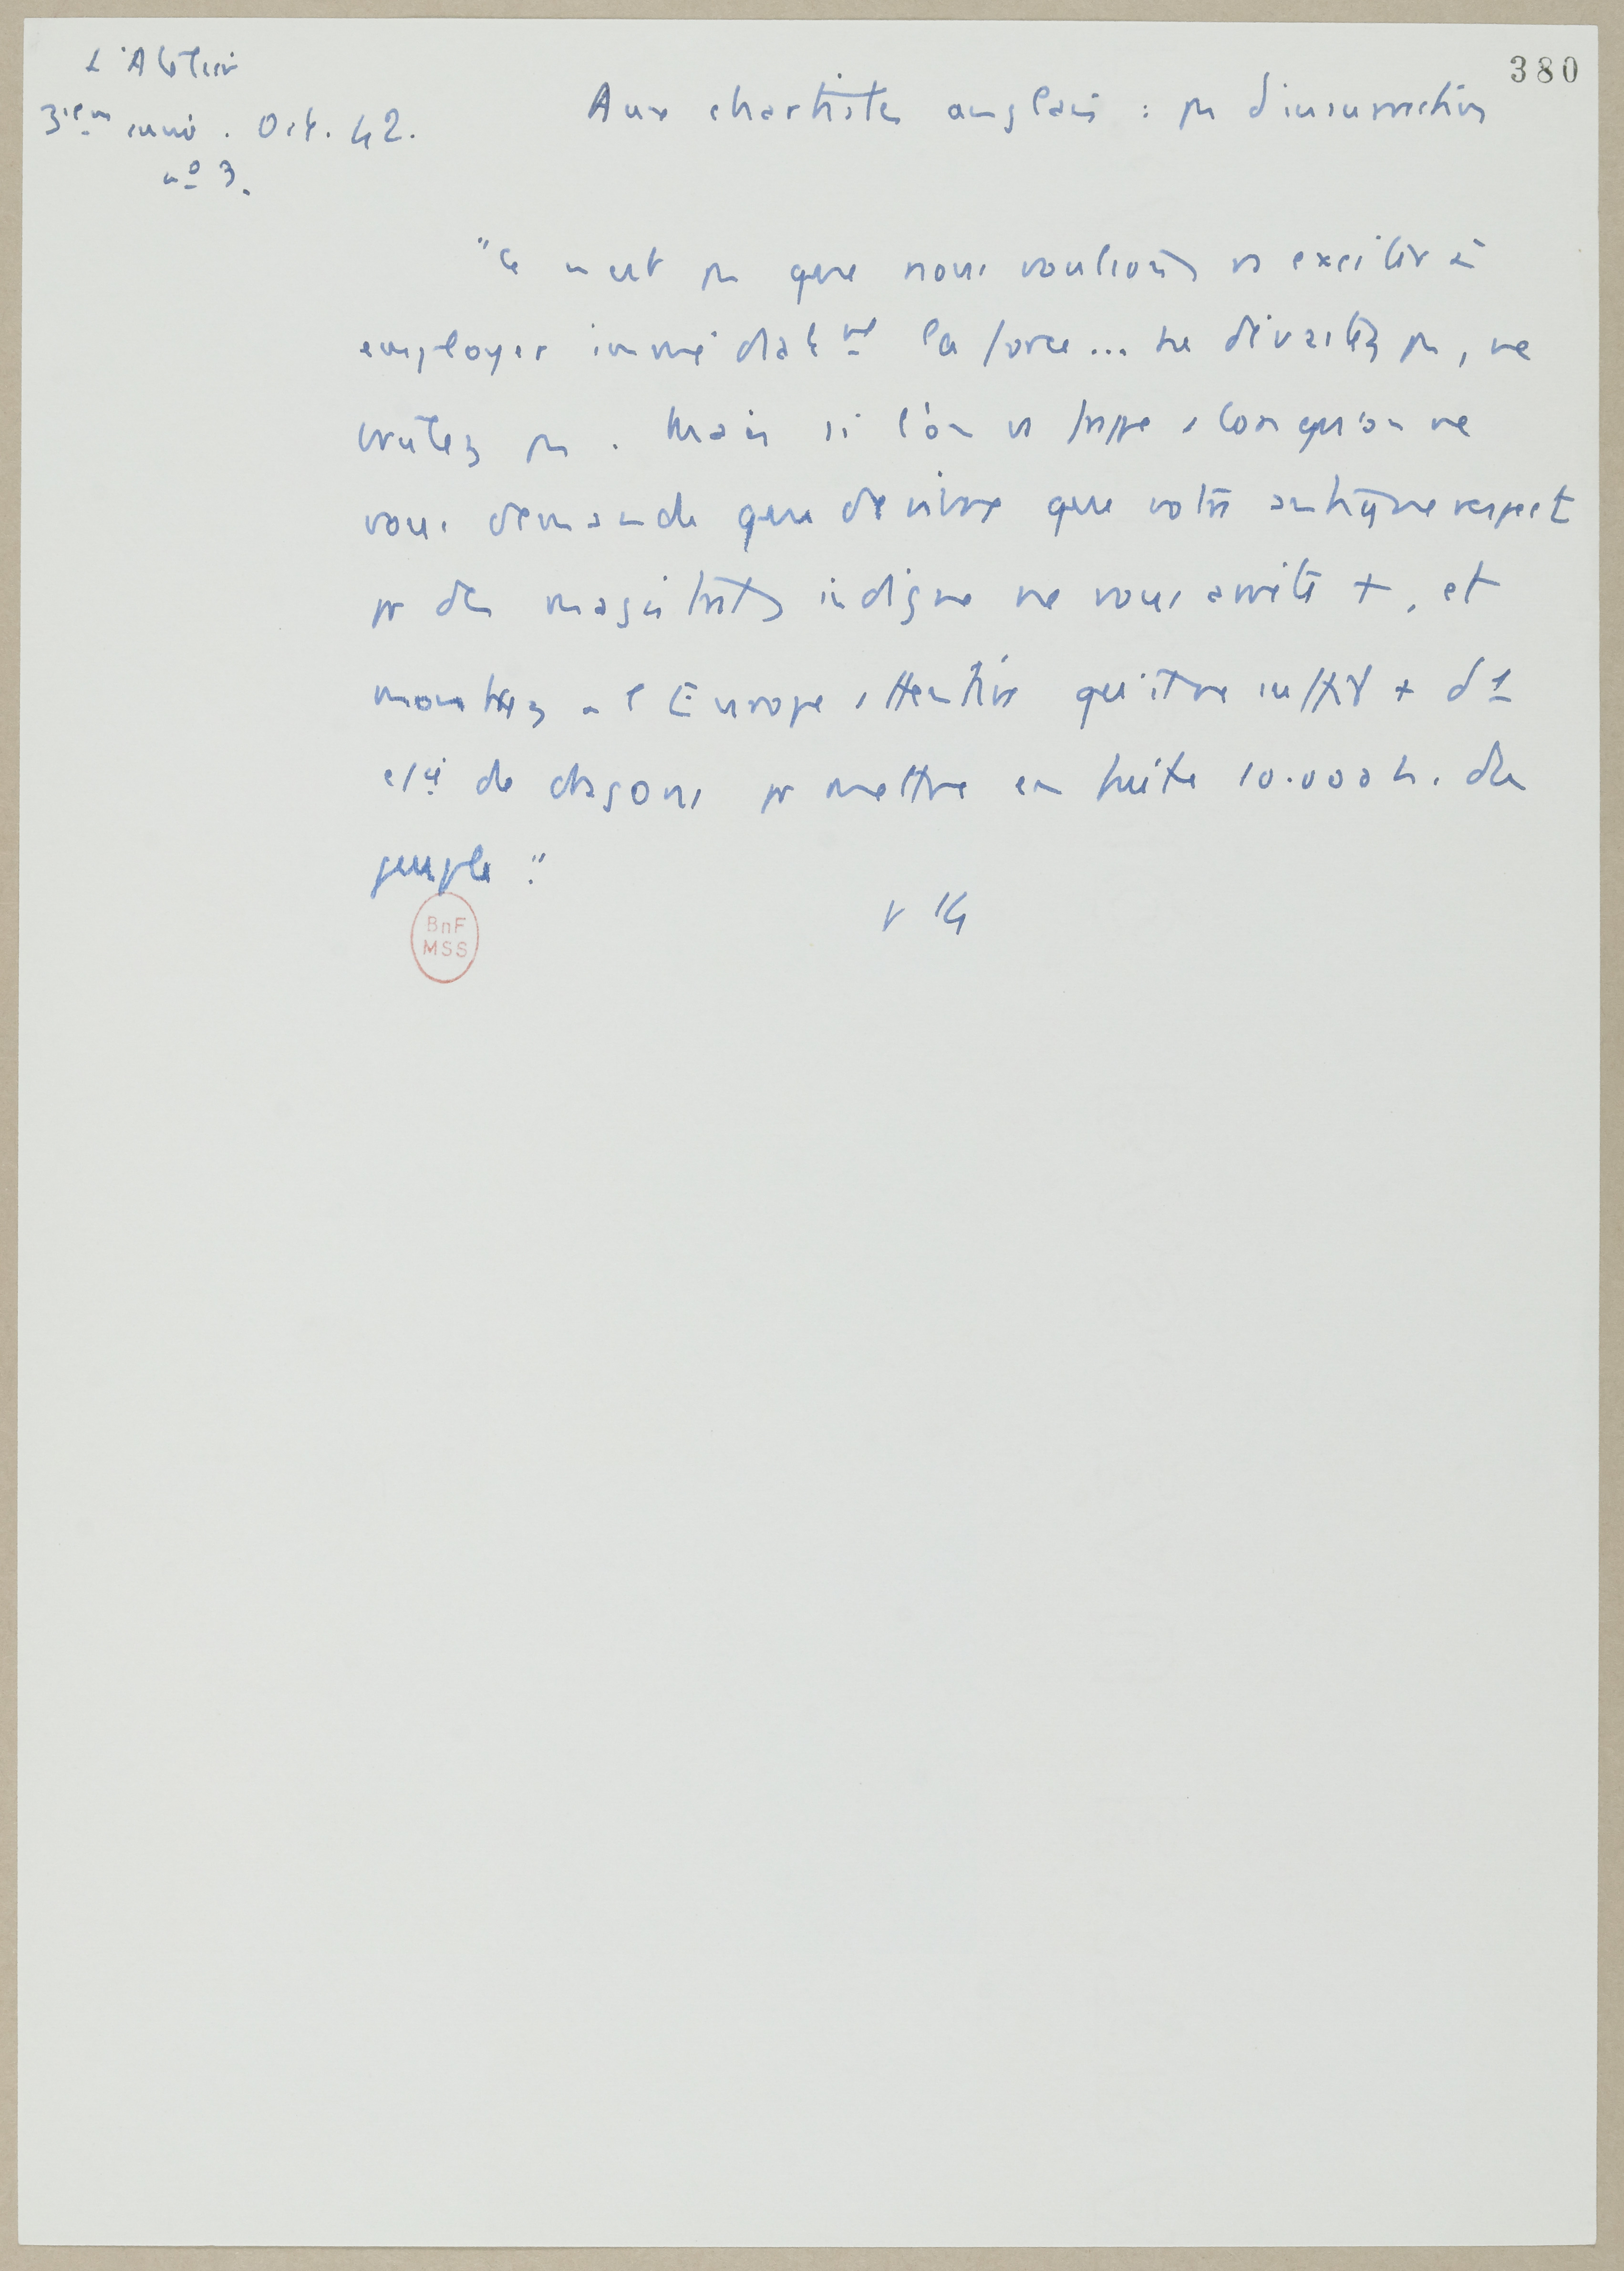 380
L'Atelier
3ième année. Oct. 42.
nº 3.
Aux chartistes anglais : pas d'insurrection
"Ce n'est pas que nous voulions vs exciter à
employer immédiatemt la force... ne dévastez pas, ne
brûlez pas. Mais si l'on vs frappe alors qu'on ne
vous demande que de vivre que votre antique respect
pr des magistrats indignes ne vous arrête +, et
montrez à l'Europe attentive qu'il ne suffit + d'1
cie de dragons pr mettre en fuite 10.000 h. du
peuple."
BnF
MSS
14